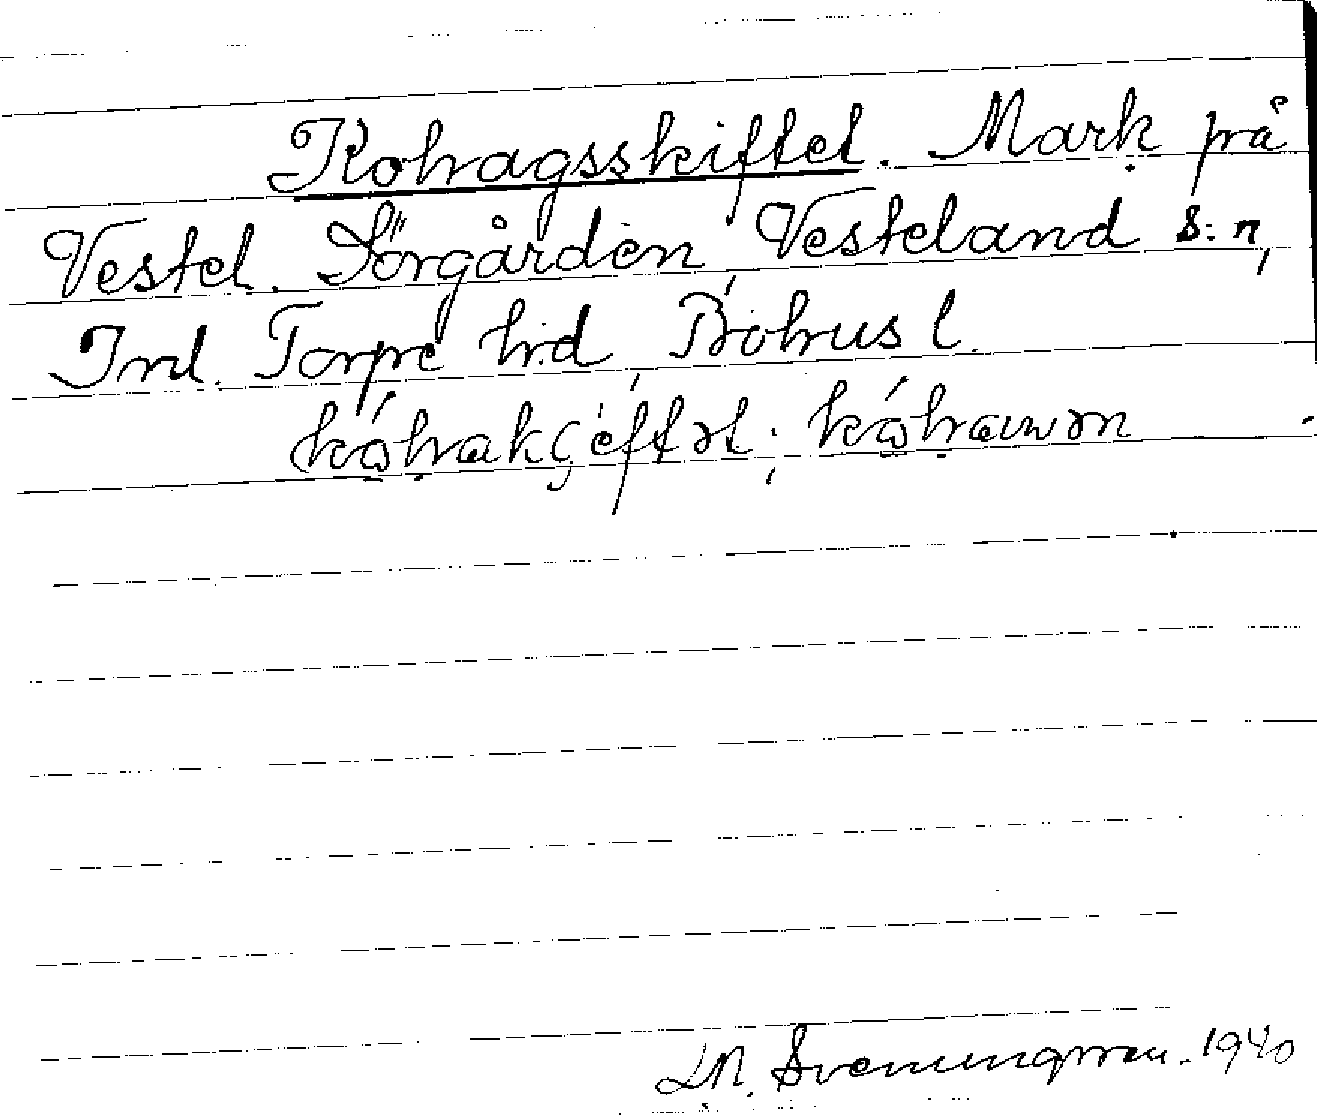 Kohagsskiftet. Mark på
Vestel. Sörgården, Vesteland s:n,
Inl. Torpe hd, Bohus l.
kóhakʂéftət; kóhaɯən
D.N. Svenungsson. 1940